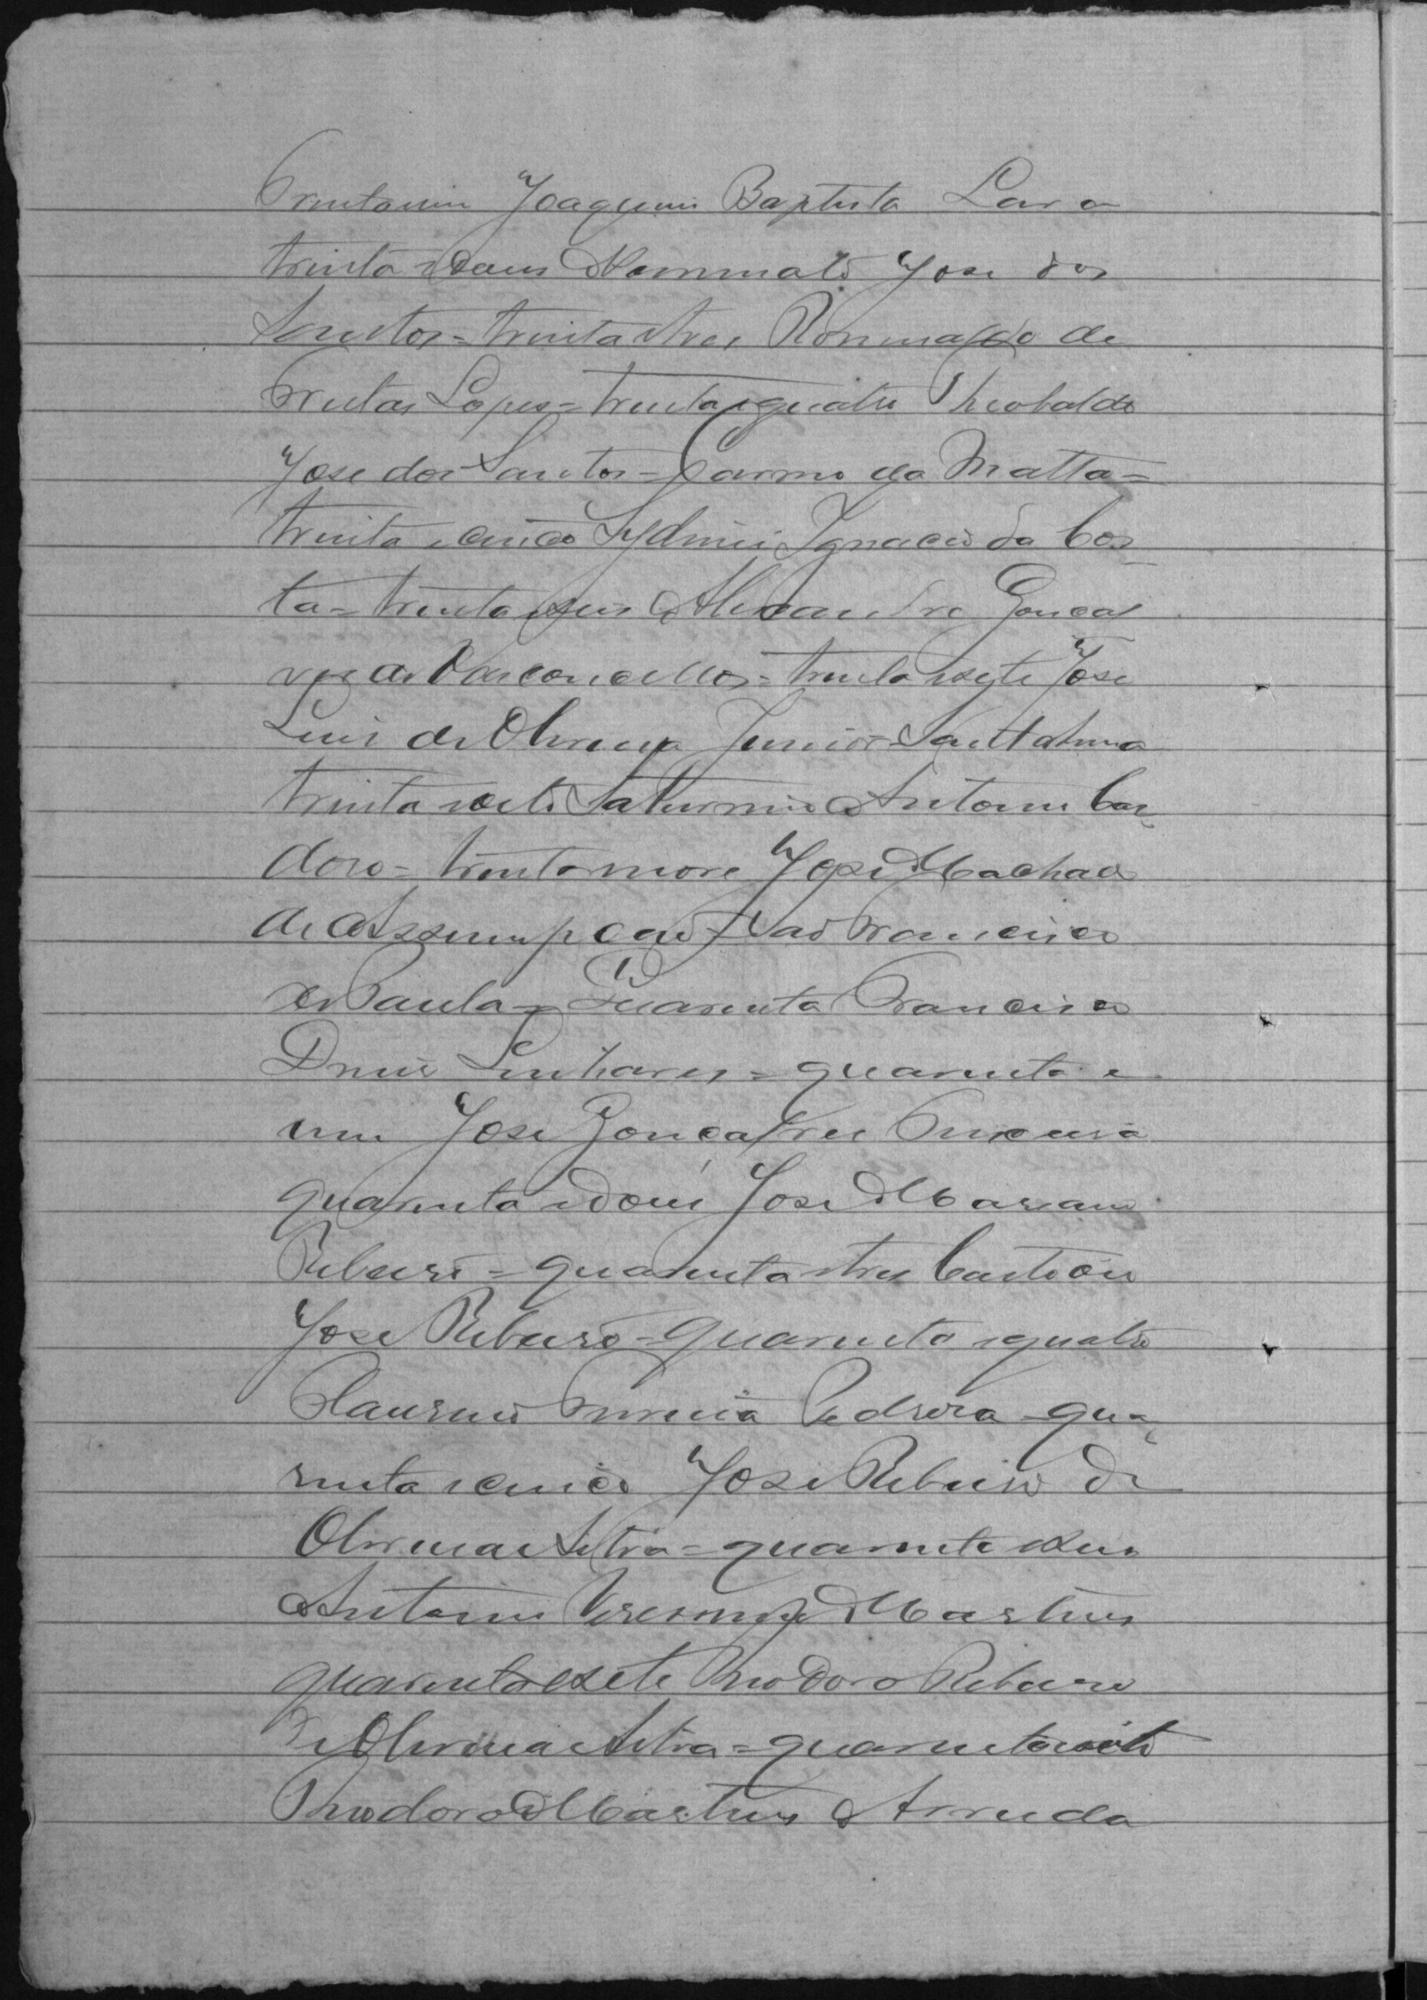 Trintaeum Joaquim Baptista Lara
trinta e dous José dos
Santos = trinta e tres Romualdo de
Freitas Lopes = trinta e quatro Theobaldo
José dos Santos = Carmo da Matta =
trinta e cinco Ignacio da Cos
ta = trinta e seis Alexandre Gonçal
ves de Vasconcellos = trinta e sete José
Luis de Oliveira Junior = Sant'Anna
trinta e oito Saturnino Antonio Car
doso = trinta e nove José Machado
de Assumpção = São Francisco
de Paula = Quarenta Francisco
Diniz Linhares = quarenta e
um José Gonçalves
quarenta e dois José Mariano
Ribeiro = quarenta e tres
José Ribeiro = quarenta e quatro
Pedrosa = qua
renta e cinco José Ribeiro de
Oliveira e Silva = quarenta e seis
Antonio Verissimo Martins
quarenta e sete Theodoro Ribeiro
de Oliveira e Silva = quarenta e oito
Theodoro Martins Arruda